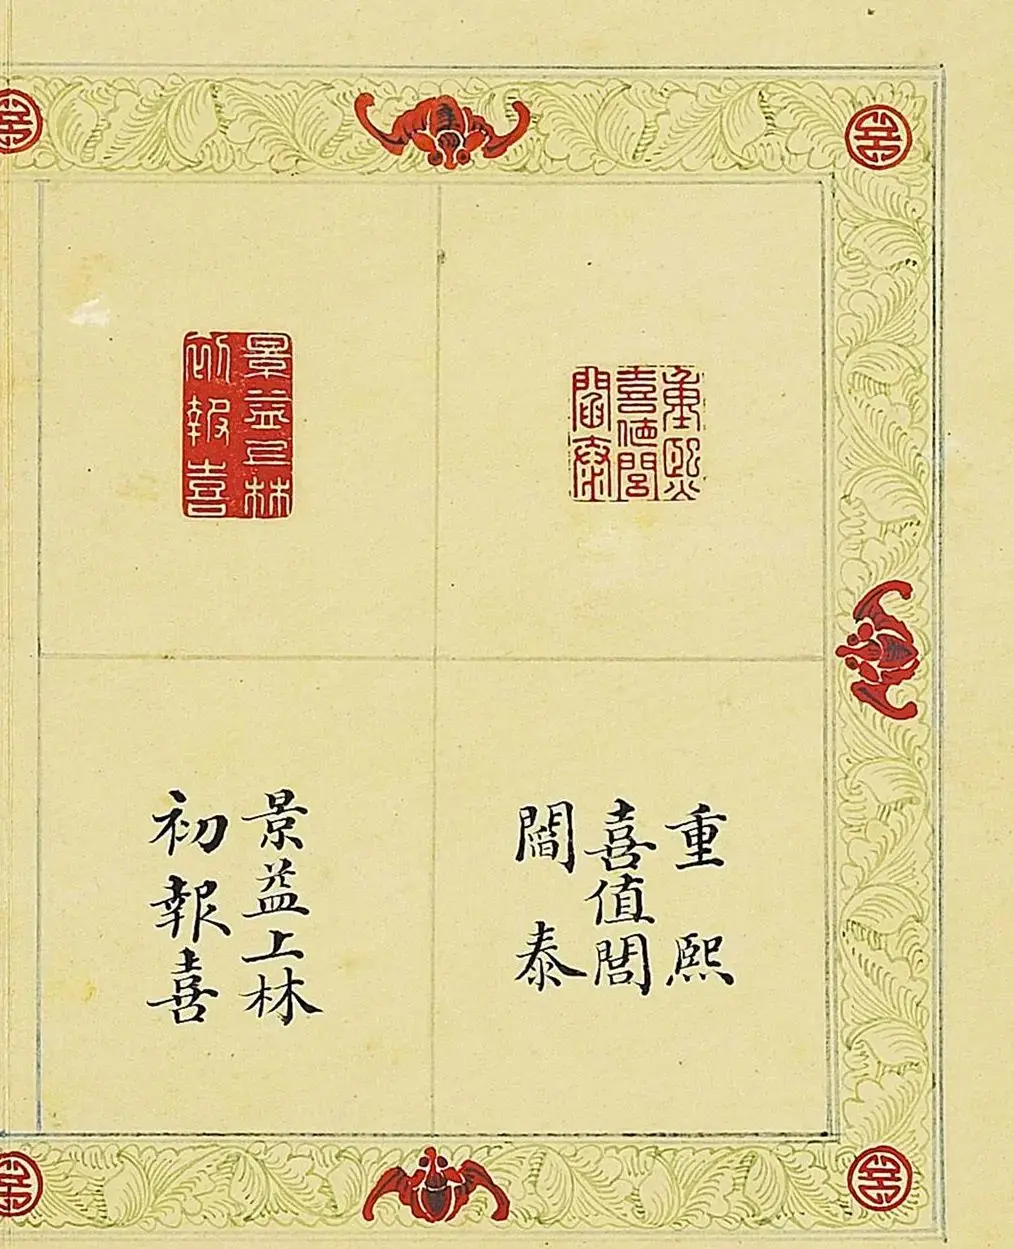 重熙
喜值閭
閻泰
景益上林
初報喜
重熙
喜值閭
閻泰
景益上林
初報喜